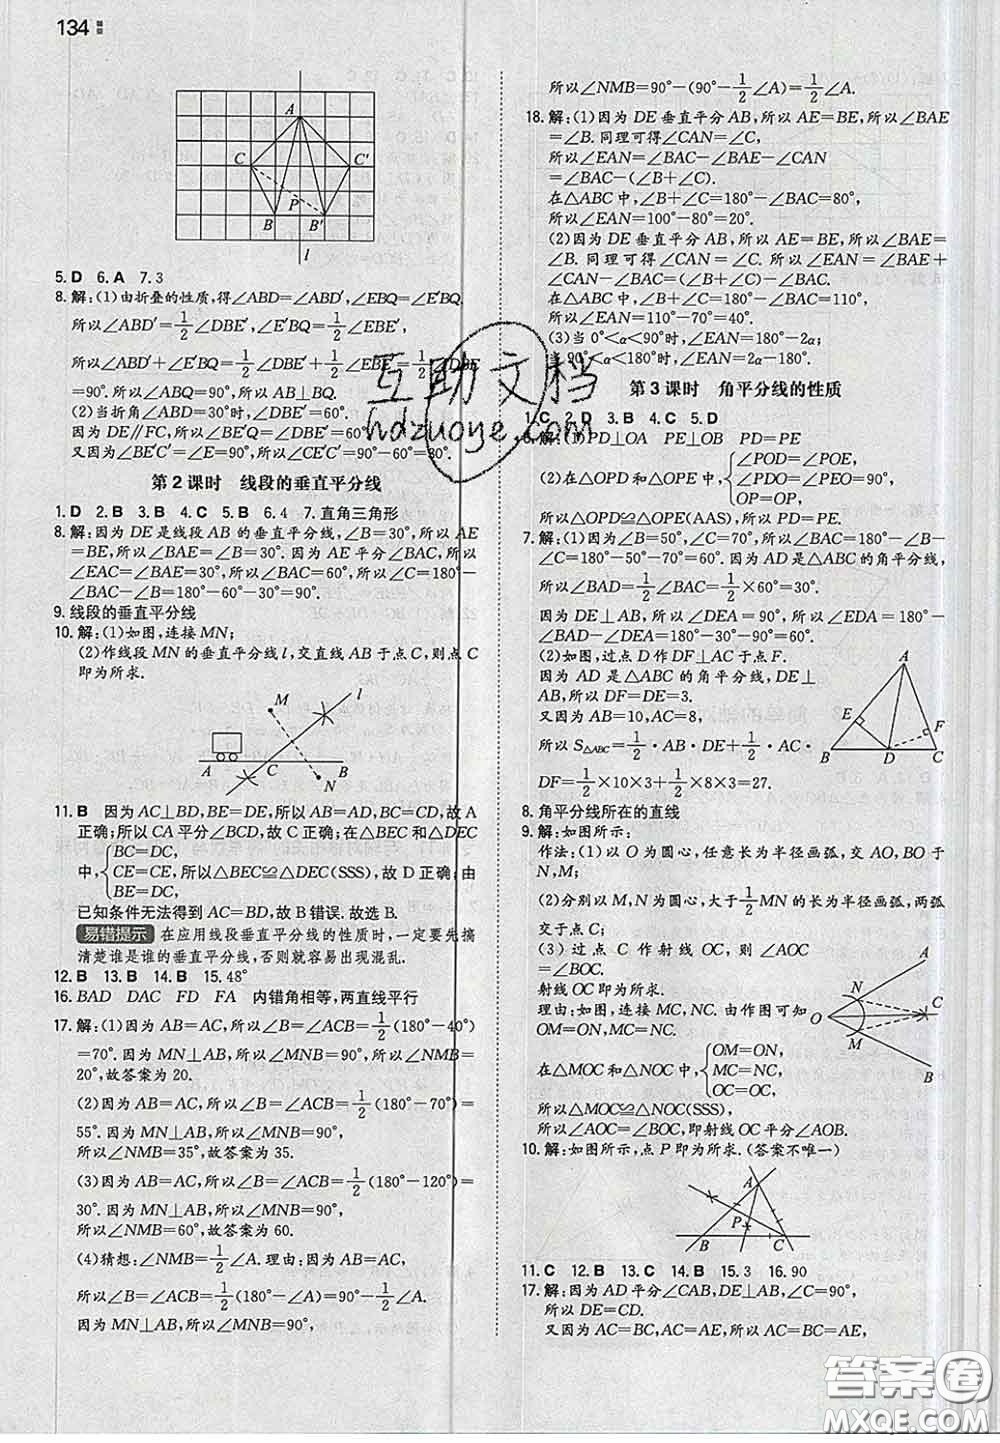 134
A
C
C'
P
B
B'
l
5. D 6. A 7. 3
8. 解:(1)由折叠的性质,得∠ABD=∠ABD',∠EBQ=∠E'BQ.
所以∠ABD'=1/2∠DBE',∠E'BQ=1/2∠EBE',
所以∠ABD'+∠E'BQ=1/2∠DBE'+1/2∠EBE'=1/2∠DBE
=90°. 所以∠ABQ=90°. 所以AB⊥BQ.
(2)当折角∠ABD=30°时,∠DBE'=60°
因为DE∥FC,所以∠BE'Q=∠DBE'=60°
又因为∠BE'C'=∠E=90°,所以∠CE'C'=90°-60°=30°.
第2课时 线段的垂直平分线
1. D 2. B 3. B 4. C 5. B 6. 4 7. 直角三角形
8. 解:因为DE是线段AB的垂直平分线,∠B=30°,所以AE
=BE,所以∠BAE=∠B=30°. 因为AE平分∠BAC,所以
∠EAC=∠BAE=30°,所以∠BAC=60°,所以∠C=180°-
∠BAC-∠B=180°-60°-30°=90°.
9. 线段的垂直平分线
10. 解:(1)如图,连接MN;
(2)作线段MN的垂直平分线l,交直线AB于点C,则点C
即为所求.
M
l
A
C
B
N
11. B 因为AC⊥BD,BE=DE,所以AB=AD,BC=CD,故A
正确;所以CA平分∠BCD,故C正确;在△BEC和△DEC
中,{BC=DC,
CE=CE,所以△BEC≌△DEC(SSS),故D正确;由
BE=DE,
已知条件无法得到AC=BD,故B错误. 故选B.
易错提示 在应用线段垂直平分线的性质时,一定要先搞
清楚谁是谁的垂直平分线,否则就容易出现混乱.
12. B 13. B 14. B 15. 48°
16. BAD DAC FD FA 内错角相等,两直线平行
17. 解:(1)因为AB=AC,所以∠B=∠ACB=1/2(180°-40°)
=70°. 因为MN⊥AB,所以∠MNB=90°,所以∠NMB=
20°,故答案为20.
(2)因为AB=AC,所以∠B=∠ACB=1/2(180°-70°)=
55°. 因为MN⊥AB,所以∠MNB=90°,
所以∠NMB=35°,故答案为35.
(3)因为AB=AC,所以∠B=∠ACB=1/2(180°-120°)=
30°. 因为MN⊥AB,所以∠MNB=90°,
所以∠NMB=60°,故答案为60.
(4)猜想:∠NMB=1/2∠A. 理由:因为AB=AC,
所以∠B=∠ACB=1/2(180°-∠A)=90°-1/2∠A.
因为MN⊥AB,所以∠MNB=90°,
所以∠NMB=90°-(90°-1/2∠A)=1/2∠A.
18. 解:(1)因为DE垂直平分AB,所以AE=BE,所以∠BAE
=∠B. 同理可得∠CAN=∠C,
所以∠EAN=∠BAC-∠BAE-∠CAN
=∠BAC-(∠B+∠C).
在△ABC中,∠B+∠C=180°-∠BAC=80°,
所以∠EAN=100°-80°=20°.
(2)因为DE垂直平分AB,所以AE=BE,所以∠BAE=
∠B. 同理可得∠CAN=∠C. 所以∠EAN=∠BAE+
∠CAN-∠BAC=(∠B+∠C)-∠BAC.
在△ABC中,∠B+∠C=180°-∠BAC=110°,
所以∠EAN=110°-70°=40°.
(3)当0°<α<90°时,∠EAN=180°-2α;
90°<α<180°时,∠EAN=2α-180°.
第3课时 角平分线的性质
1. C 2. D 3. B 4. C 5. D
6. 解:(1)PD⊥OA PE⊥OB PD=PE
(2)在△OPD和△OPE中,{∠POD=∠POE,
∠PDO=∠PEO=90°,
OP=OP,
所以△OPD≌△OPE(AAS),所以PD=PE.
7. 解:(1)因为∠B=50°,∠C=70°,所以∠BAC=180°-∠B-
∠C=180°-50°-70°=60°. 因为AD是△ABC的角平分线,
所以∠BAD=1/2∠BAC=1/2×60°=30°.
因为DE⊥AB,所以∠DEA=90°,所以∠EDA=180°-
∠BAD-∠DEA=180°-30°-90°=60°.
(2)如图,过点D作DF⊥AC于点F.
因为AD是△ABC的角平分线,DE⊥
AB,所以DF=DE=3.
又因为AB=10,AC=8,
所以S△ABC=1/2·AB·DE+1/2·AC·
DF=1/2×10×3+1/2×8×3=27.
A
E
F
B
D
C
8. 角平分线所在的直线
9. 解:如图所示:
作法:(1)以O为圆心,任意长为半径画弧,交AO,BO于
N,M;
(2)分别以M,N为圆心,大于1/2MN的长为半径画弧,两弧
交于点C;
(3)过点C作射线OC,则∠AOC
=∠BOC.
射线OC即为所求.
理由:如图,连接MC,NC. 由作图可知
OM=ON,MC=NC.
在△MOC和△NOC中,{OM=ON,
MC=NC,
OC=OC,
所以△MOC≌△NOC(SSS),
所以∠AOC=∠BOC,即射线OC平分∠AOB.
A
N
O
C
M
B
10. 解:如图所示,点P即为所求.(答案不唯一)
A
P
B
C
11. C 12. B 13. C 14. B 15. 3 16. 90
17. 解:因为AD平分∠CAB,DE⊥AB,∠C=90°,
所以DE=CD.
又因为AC=BC,AC=AE,所以AC=BC=AE,
互助文档
hdzuoye.com
答案圈
MXQE.COM